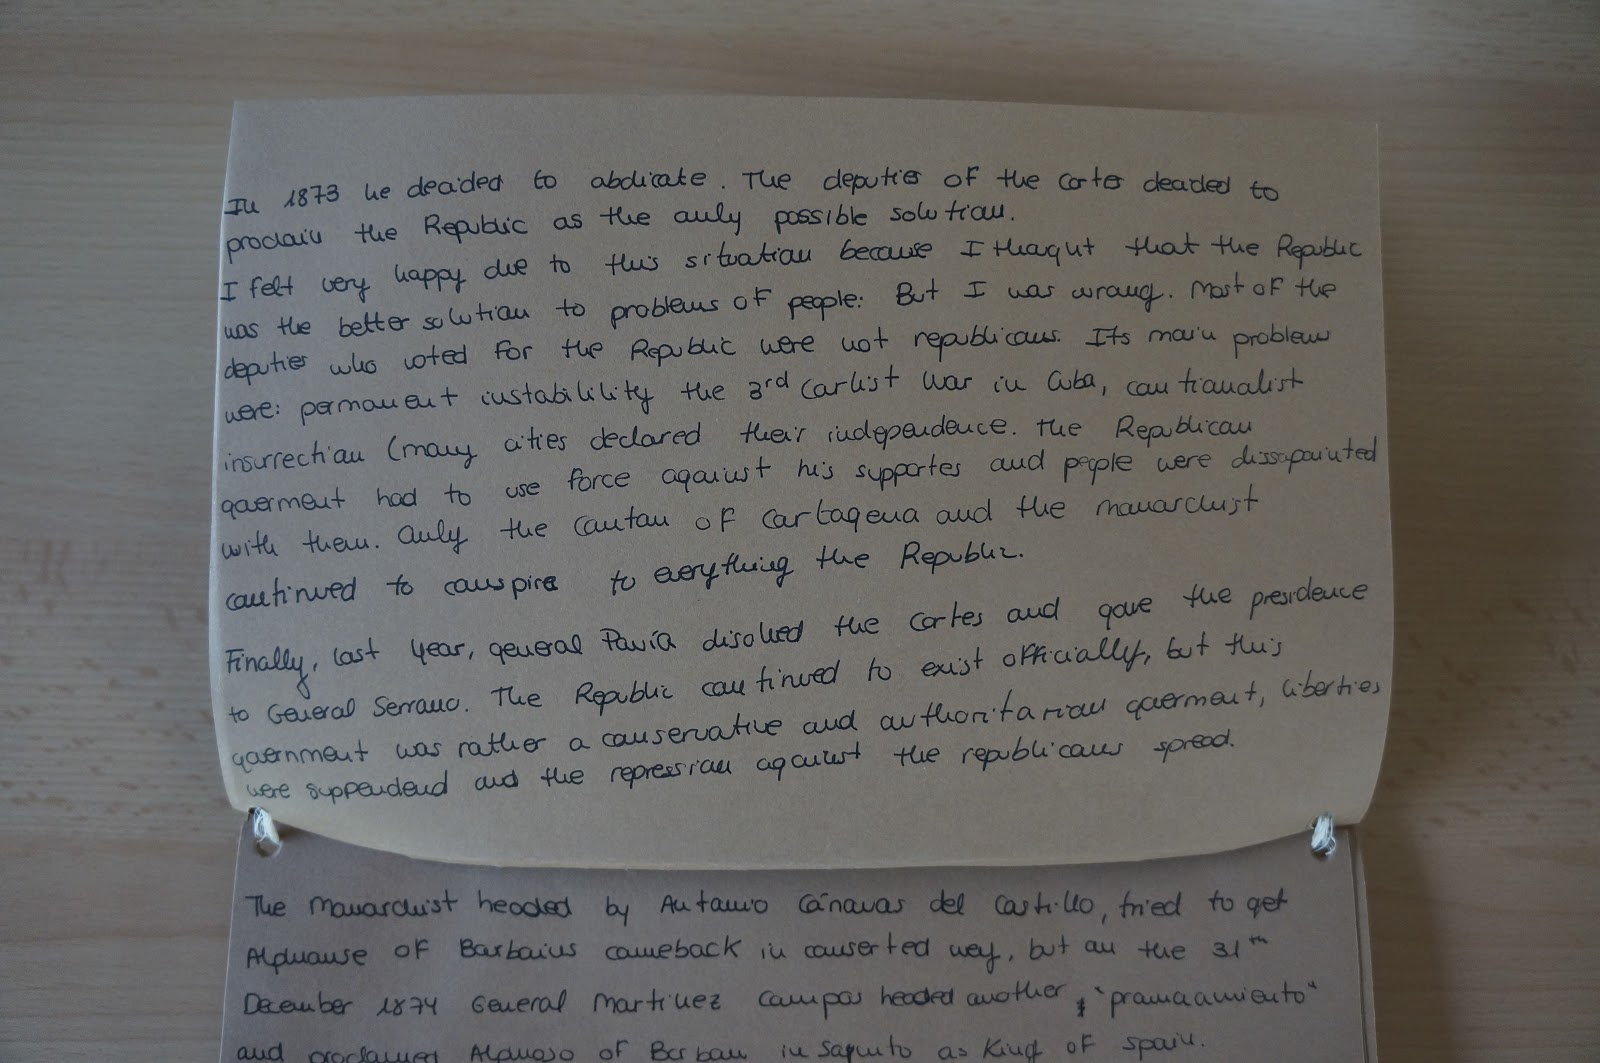 In 1873 he decided to abdicate. The deputies of the Cortes decided to
proclaim the Republic as the only possible solution.
I felt very happy due to this situation because I thougut that the Republic
was the better solution to problems of people. But I was wrong. Most of the
deputies who voted for the Republic were not republicans. Its main problems
were: permanent instabilility the 3rd Carlist War in Cuba, cantionalist
insurrection (many cities declared their independence. The Republican
goverment had to use force against his supportes and people were dissapointed
with them. Only the Canton of Cartagena and the monarchist
continued to conspire to everything the Republic.
Finally, last year, general Pavía disolved the Cortes and gave the presidence
to General Serrano. The Republic continued to exist officially, but this
government was rather a conservative and authoritarian goverment, liberties
were suppendend and the repression against the republicans spread.
The monarchist headed by Antonio Cánovas del Castillo, tried to get
Alphonse of Borboins comeback in conserted wey, but on the 31th
December 1874 General Martinez Campos headed another "pronunciamiento"
and proclaimed Alphoso of Borbon in Sagunto as King of Spain.